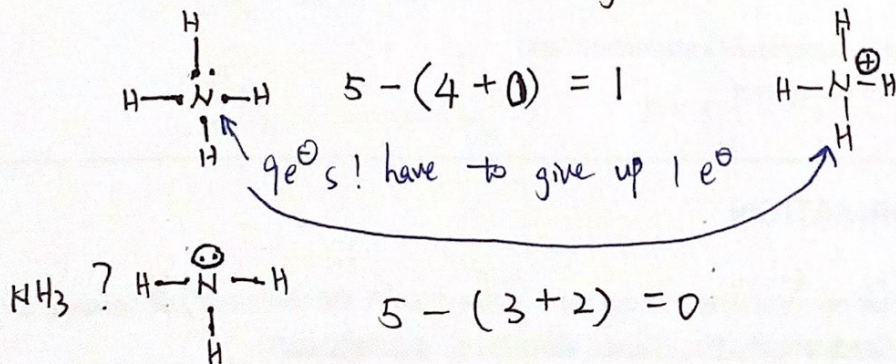 H
H N H 5 - (4 + 0) = 1
H
H
H - N - H ⊕
H
9e⊖s! have to give up 1 e⊖
NH3 ? H - N - H 5 - (3 + 2) = 0
H